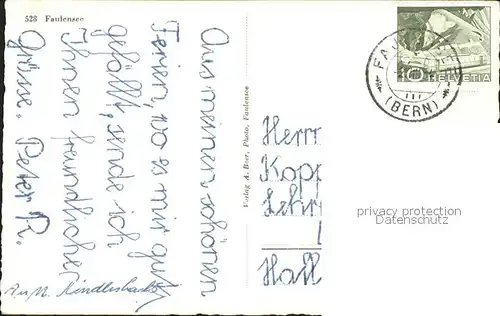 528 Faulensee
Aus meinen schönen
Ferien, wo es mir gut
gefällt, sende ich
Ihnen freundliche
Grüsse. Peter R.
Verlag A. Beer, Photo, Faulensee
HELVETIA
(BERN)
Herr
Kopp
Lehr
privacy protection
Datenschutz